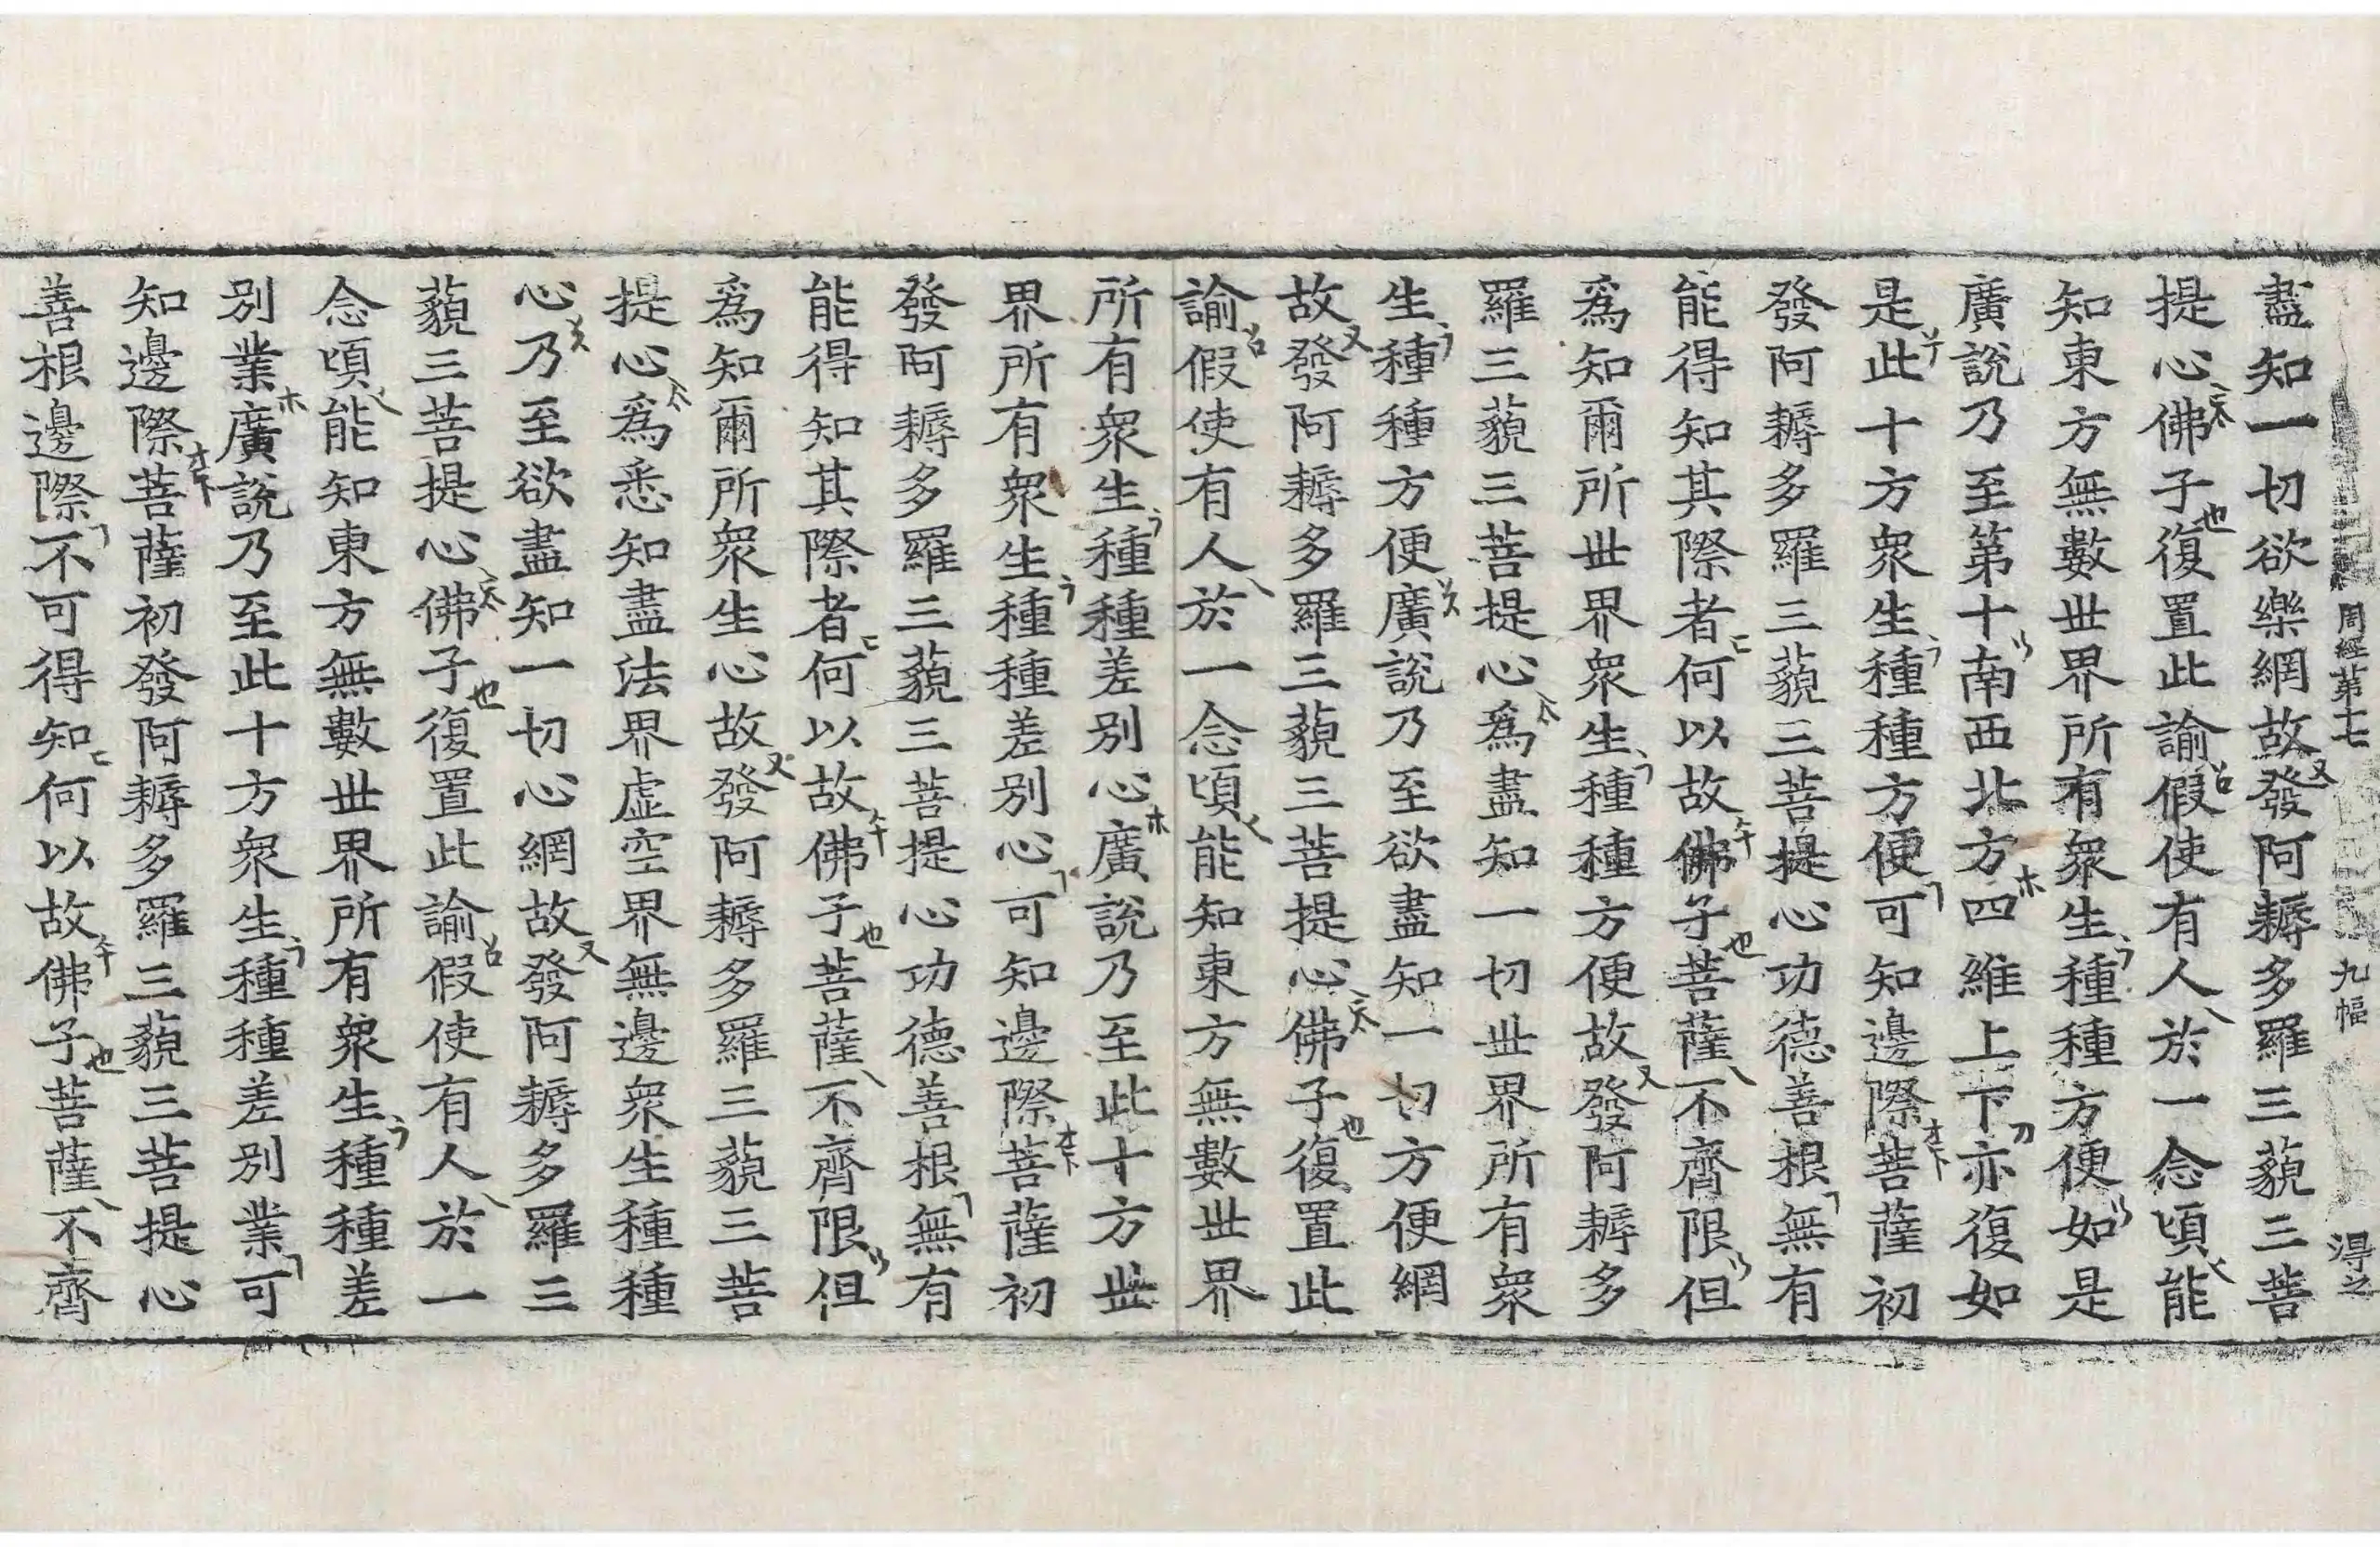 周經第十七 九幅 淂之
盡知一切欲樂網故發阿耨多羅三藐三菩
提心佛子復置此諭假使有人於一念頃能
知東方無數世界所有衆生種種方便如是
廣說乃至第十南西北方四維上下亦復如
是此十方衆生種種方便可知邊際菩薩初
發阿耨多羅三藐三菩提心功德善根無有
能得知其際者何以故佛子菩薩不齊限但
爲知爾所世界衆生種種方便故發阿耨多
羅三藐三菩提心爲盡知一切世界所有衆
生種種方便廣說乃至欲盡知一切方便網
故發阿耨多羅三藐三菩提心佛子復置此
諭假使有人於一念頃能知東方無數世界
所有衆生種種差別心廣說乃至此十方世
界所有衆生種種差別心可知邊際菩薩初
發阿耨多羅三藐三菩提心功德善根無有
能得知其際者何以故佛子菩薩不齊限但
爲知爾所衆生心故發阿耨多羅三藐三菩
提心爲悉知盡法界虛空界無邊衆生種種
心乃至欲盡知一切心網故發阿耨多羅三
藐三菩提心佛子復置此諭假使有人於一
念頃能知東方無數世界所有衆生種種差
別業廣說乃至此十方衆生種種差別業可
知邊際菩薩初發阿耨多羅三藐三菩提心
善根邊際不可得知何以故佛子菩薩不齊